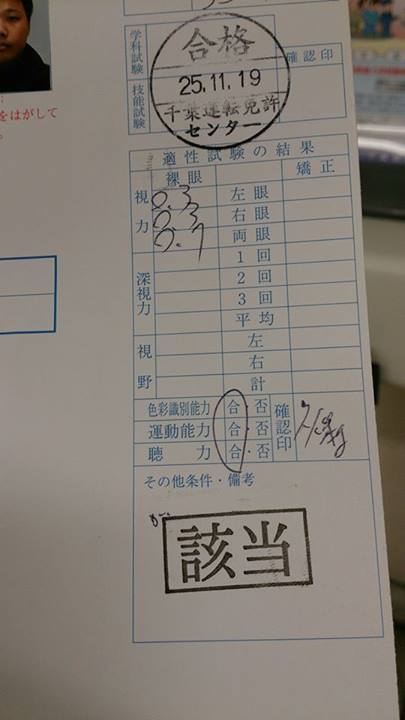 をはがして
学科試験
技能試験
合格
25.11.19
千葉運転免許
センター
確認印
適性試験の結果
裸眼
矯正
視力
0.3
左眼
0.3
右眼
0.7
両眼
深視力
1回
2回
3回
平均
視野
左
右
計
色彩識別能力 合・否
運動能力 合・否
聴力 合・否
確認印
その他条件・備考
該当